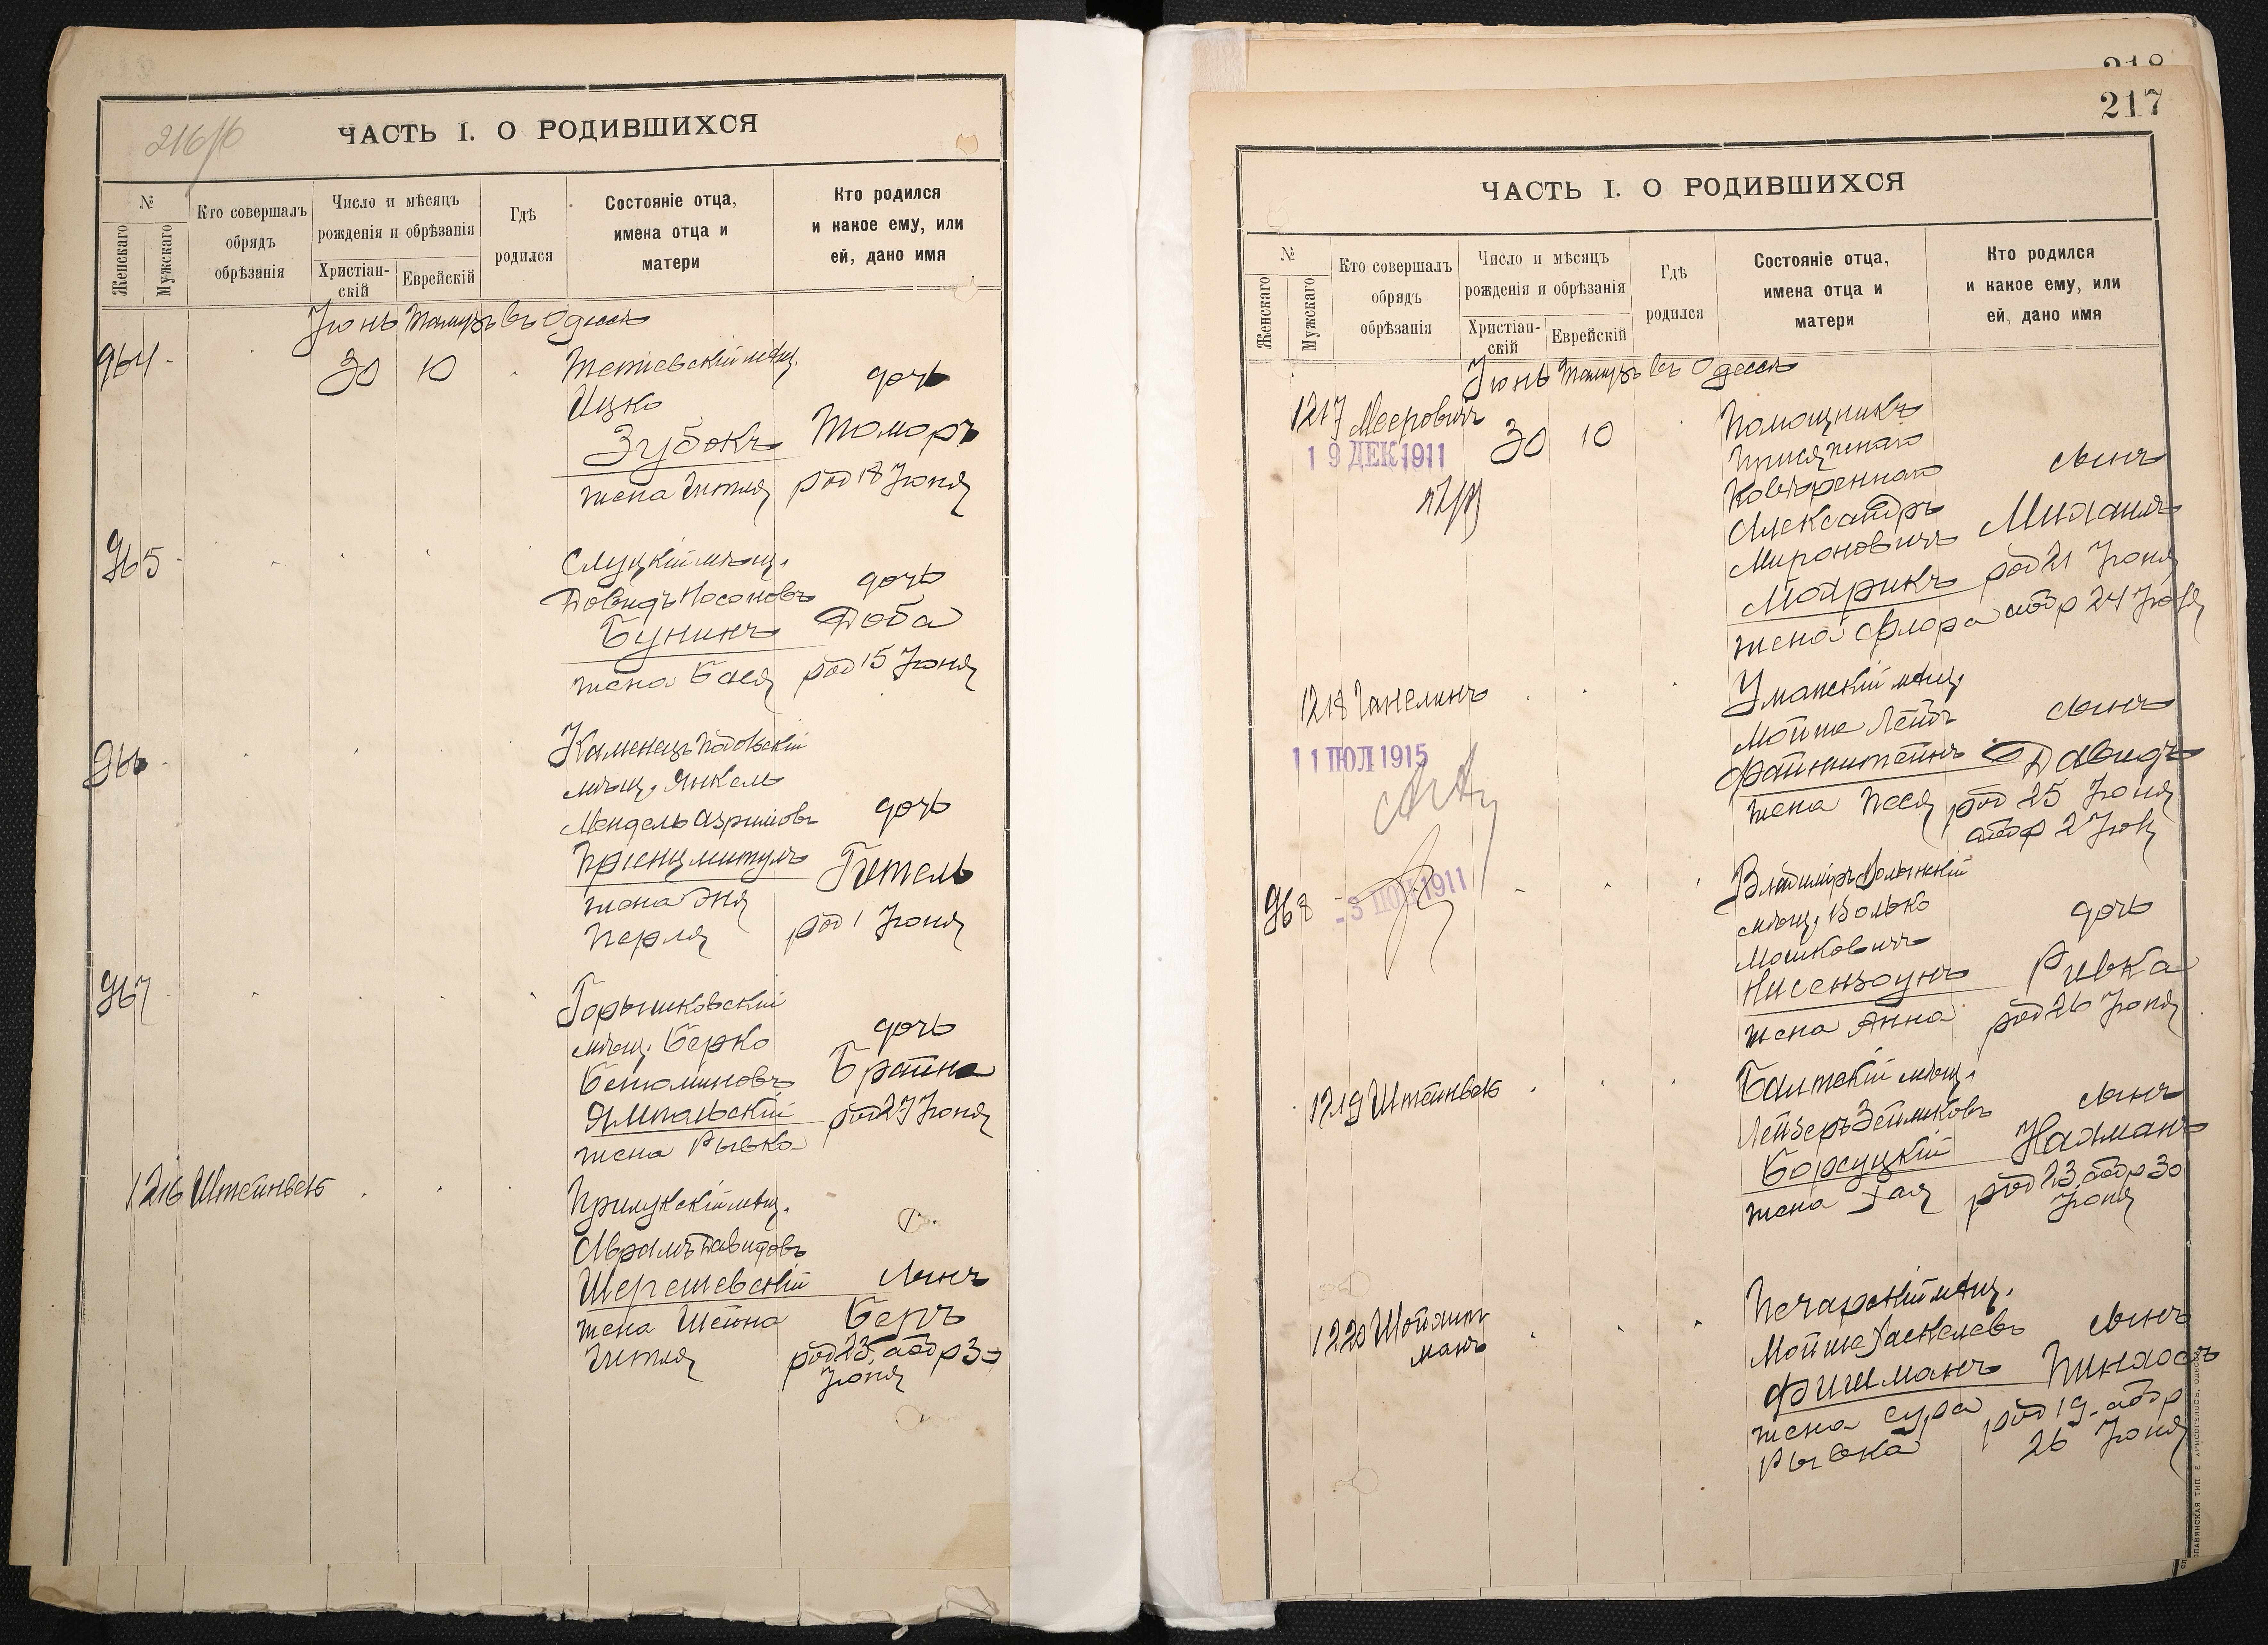 216/б
ЧАСТЬ I. О РОДИВШИХСЯ
№
Женскаго
Мужскаго
Кто совершалъ обрядъ обрѣзанія
Число и мѣсяцъ рожденія и обрѣзанія
Христіан-скій
Еврейскій
Гдѣ родился
Состояніе отца, имена отца и матери
Кто родился и какое ему, или ей, дано имя
Іюнь Тамузъ въ Одессѣ
964
30 10
Тетіевскій мѣщ.
Ицко
дочь
Зубокъ
Томаръ
жена Гитля
род 18 Іюня
965
Слуцкій мѣщ.
Довидъ Носоновъ
дочь
Бунинъ
Доба
жена Бася
род 15 Іюня
966
Каменецъ Подольскій
мѣщ. Янкель
Мендель Азриловъ
дочь
Гитель
жена Эня
Перля
род 1 Іюня
967
Горышковскій
мѣщ. Берко
дочь
Беніоминовъ
Брайна
Ямпольскій
род 27 Іюня
жена Рывка
1216 Штейнвейъ
Прилукскій мѣщ.
Абрамъ Давидовъ
Шерешевскій
сынъ
жена Шейна
Беръ
Гитля
род 23, аобр 30
Іюня
218
217
ЧАСТЬ I. О РОДИВШИХСЯ
№
Женскаго
Мужскаго
Кто совершалъ обрядъ обрѣзанія
Число и мѣсяцъ рожденія и обрѣзанія
Христіан-скій
Еврейскій
Гдѣ родился
Состояніе отца, имена отца и матери
Кто родился и какое ему, или ей, дано имя
Іюнь Тамузъ въ Одессѣ
1217 Мееровичъ
30 10
19 ДЕК 1911
Помощникъ
Присяжнаго
Повѣреннаго
сынъ
Александръ
Мироновичъ
Михаилъ
род 21 Іюня
жена Флора
аобр 24 Іюня
1218 Ганелинъ
11 ІЮЛ 1915
Уманскій мѣщ.
Мойше Лейбъ
сынъ
Файнштейнъ
Давидъ
жена Песя
род 25 Іюня
аобр 2 Іюля
968
-3 1911
Владимиръ Волынскій
мѣщ. Волько
дочь
Мошковичъ
Нисензонъ
Ривка
жена Анна
род 26 Іюня
1219 Штейнвейъ
Балтскій мѣщ.
Лейзеръ Зейликовъ
сынъ
Борсуцкій
Нахманъ
жена Хая
род 23, аобр 30
Іюня
1220
манъ
Печарскій мѣщ.
Мойше Хаскелевъ
сынъ
Фишманъ
Пинхосъ
жена Сура
Рывка
род 19, аобр
26 Іюня